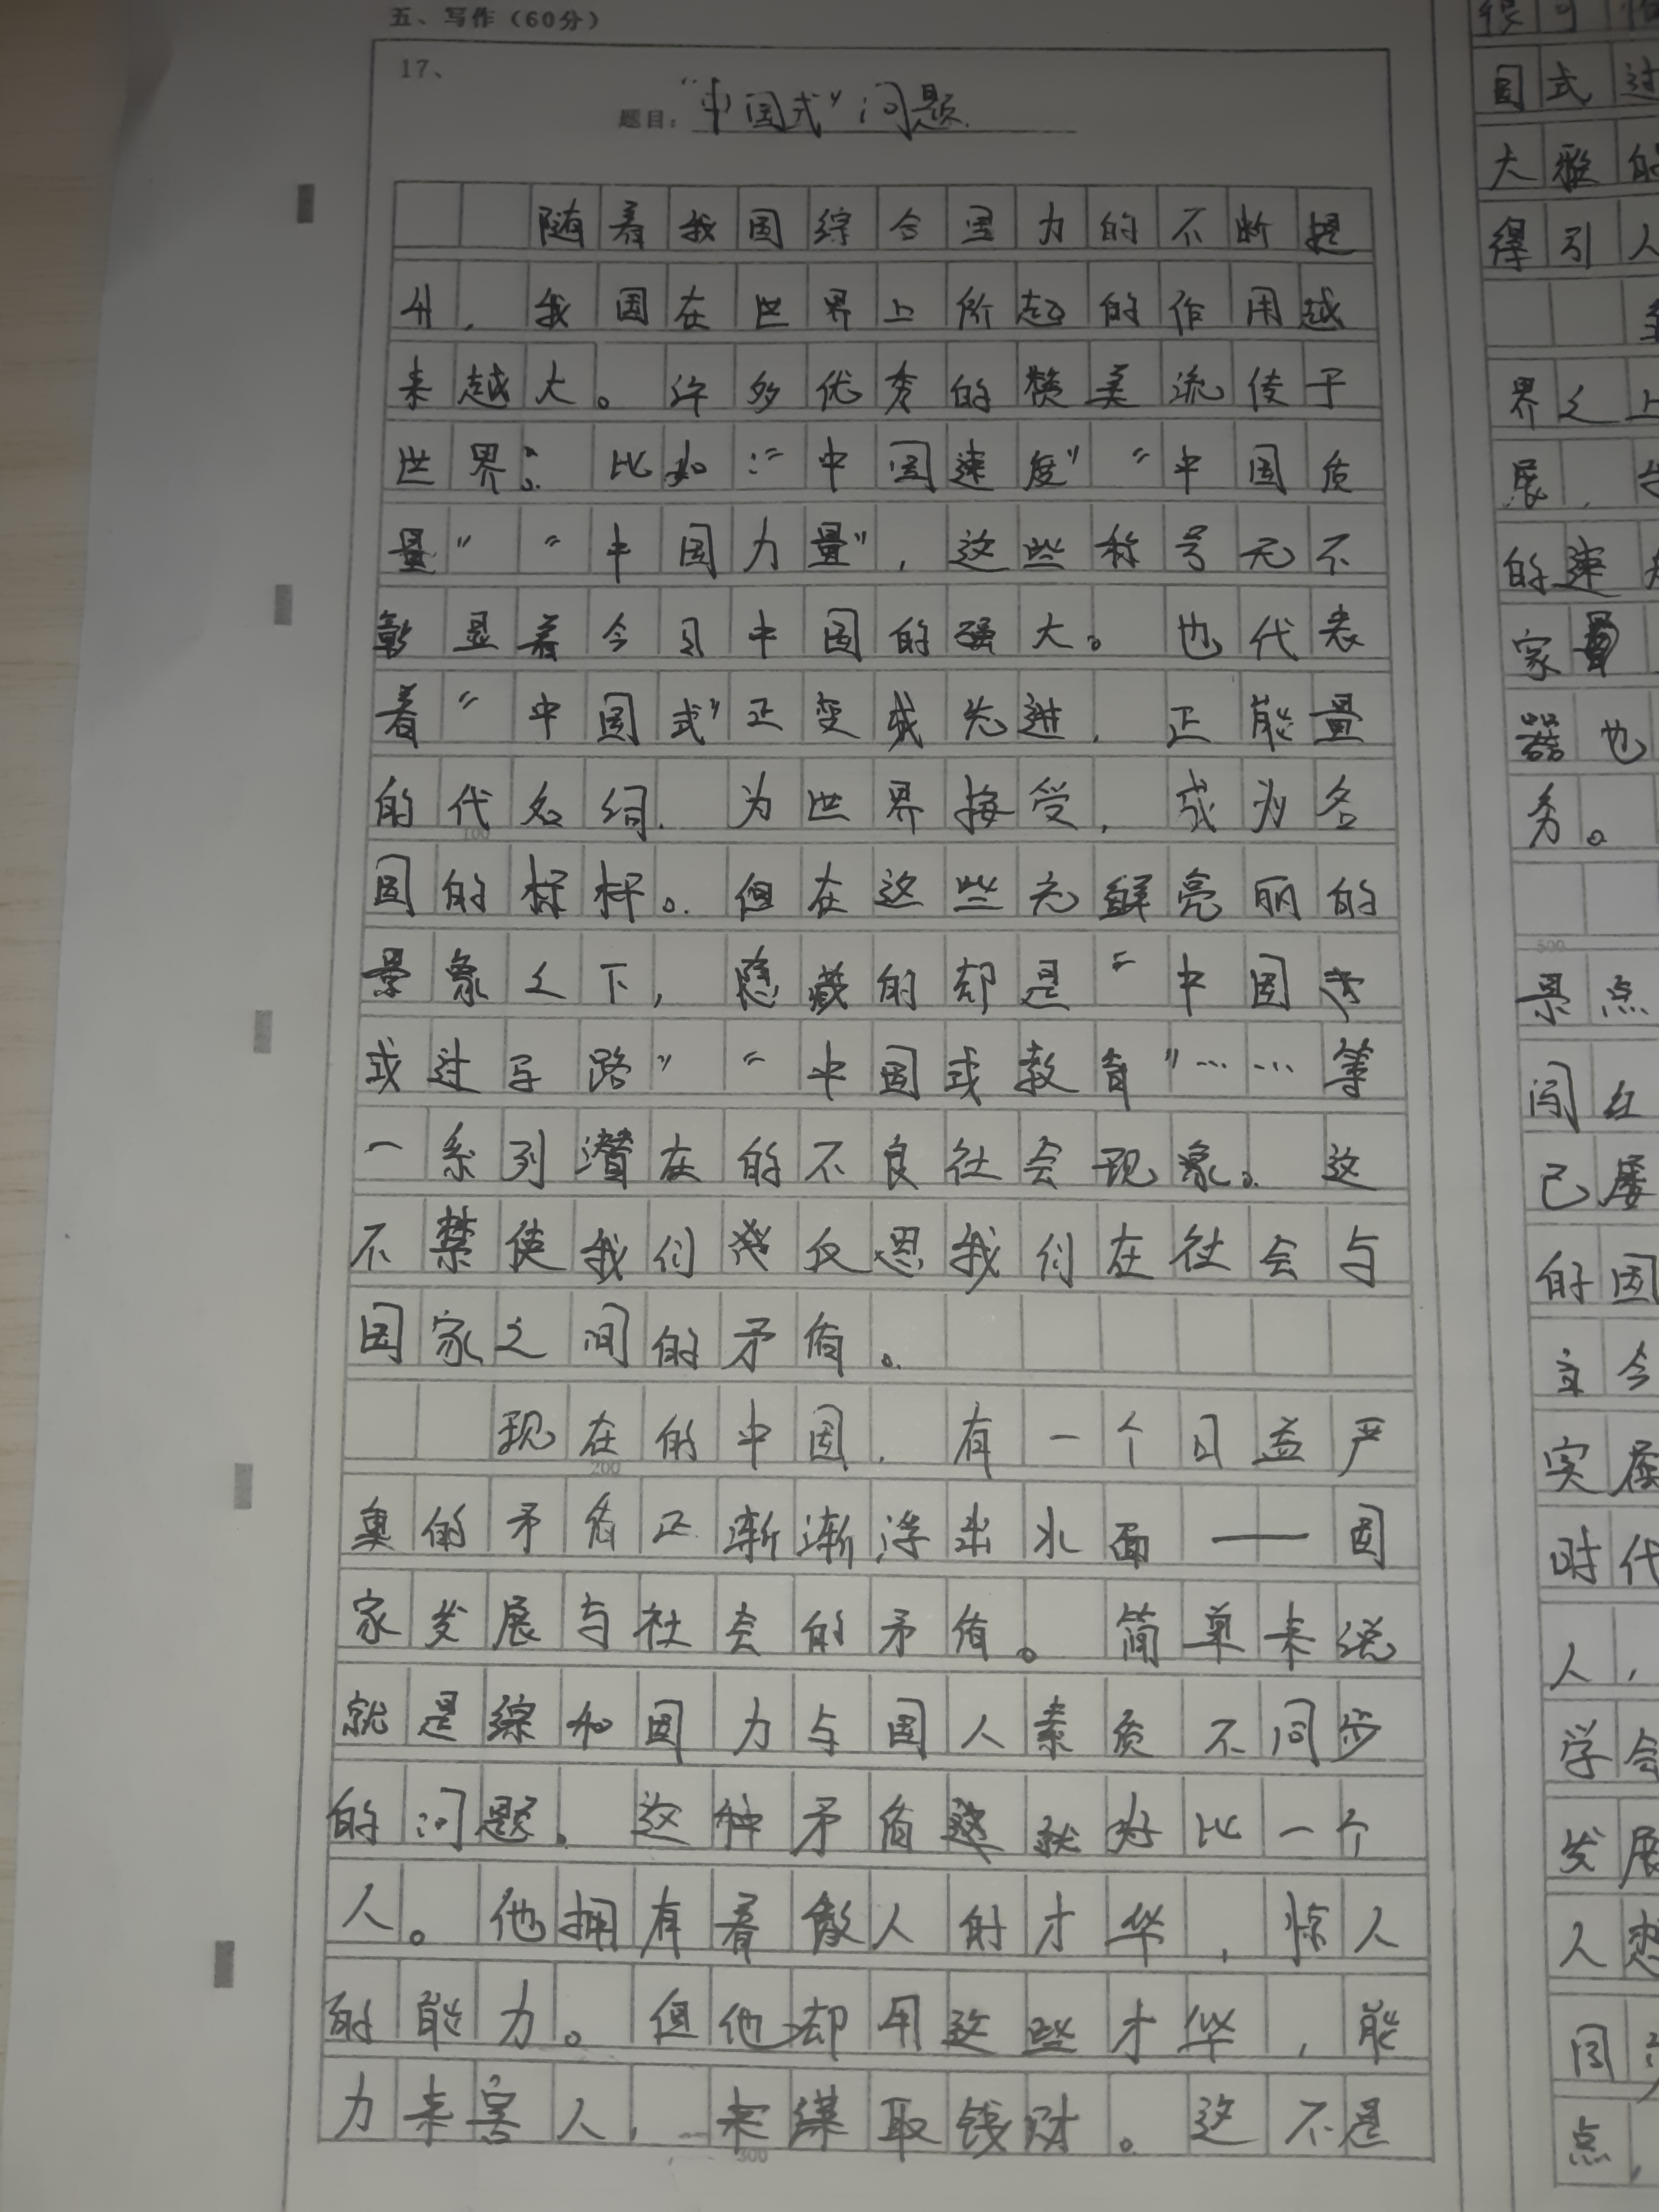 五、写作（60分）
17、
题目：“中国式”问题
随着我国综合国力的不断提
升，我国在世界上所起的作用越
来越大。许多优秀的赞美流传于
世界：比如：“中国速度”“中国质
量”“中国力量”，这些称号无不
彰显着今日中国的强大。也代表
着“中国式”正变成先进，正能量
的代名词，为世界接受，成为各
国的标杆。但在这些光鲜亮丽的
景象之下，隐藏的却是“中国
式过马路”“中国式教育”……等
一系列潜在的不良社会现象。这
不禁使我们反思我们在社会与
国家之间的矛盾。
现在的中国，有一个日益严
重的矛盾正渐渐浮出水面——国
家发展与社会的矛盾。简单来说
就是综和国力与国人素质不同步
的问题。这种矛盾就好比一个
人。他拥有着傲人的才华，惊人
的能力。但他却用这些才华，能
力来害人，来谋取钱财。这不是
100
200
300
国式过
大雅的
得引人
界之上
展，
的速
家
器也
务。
500
景点
闯红
己屡
的国
立今
实展
时代
人，
学会
发展
人想
同
点，